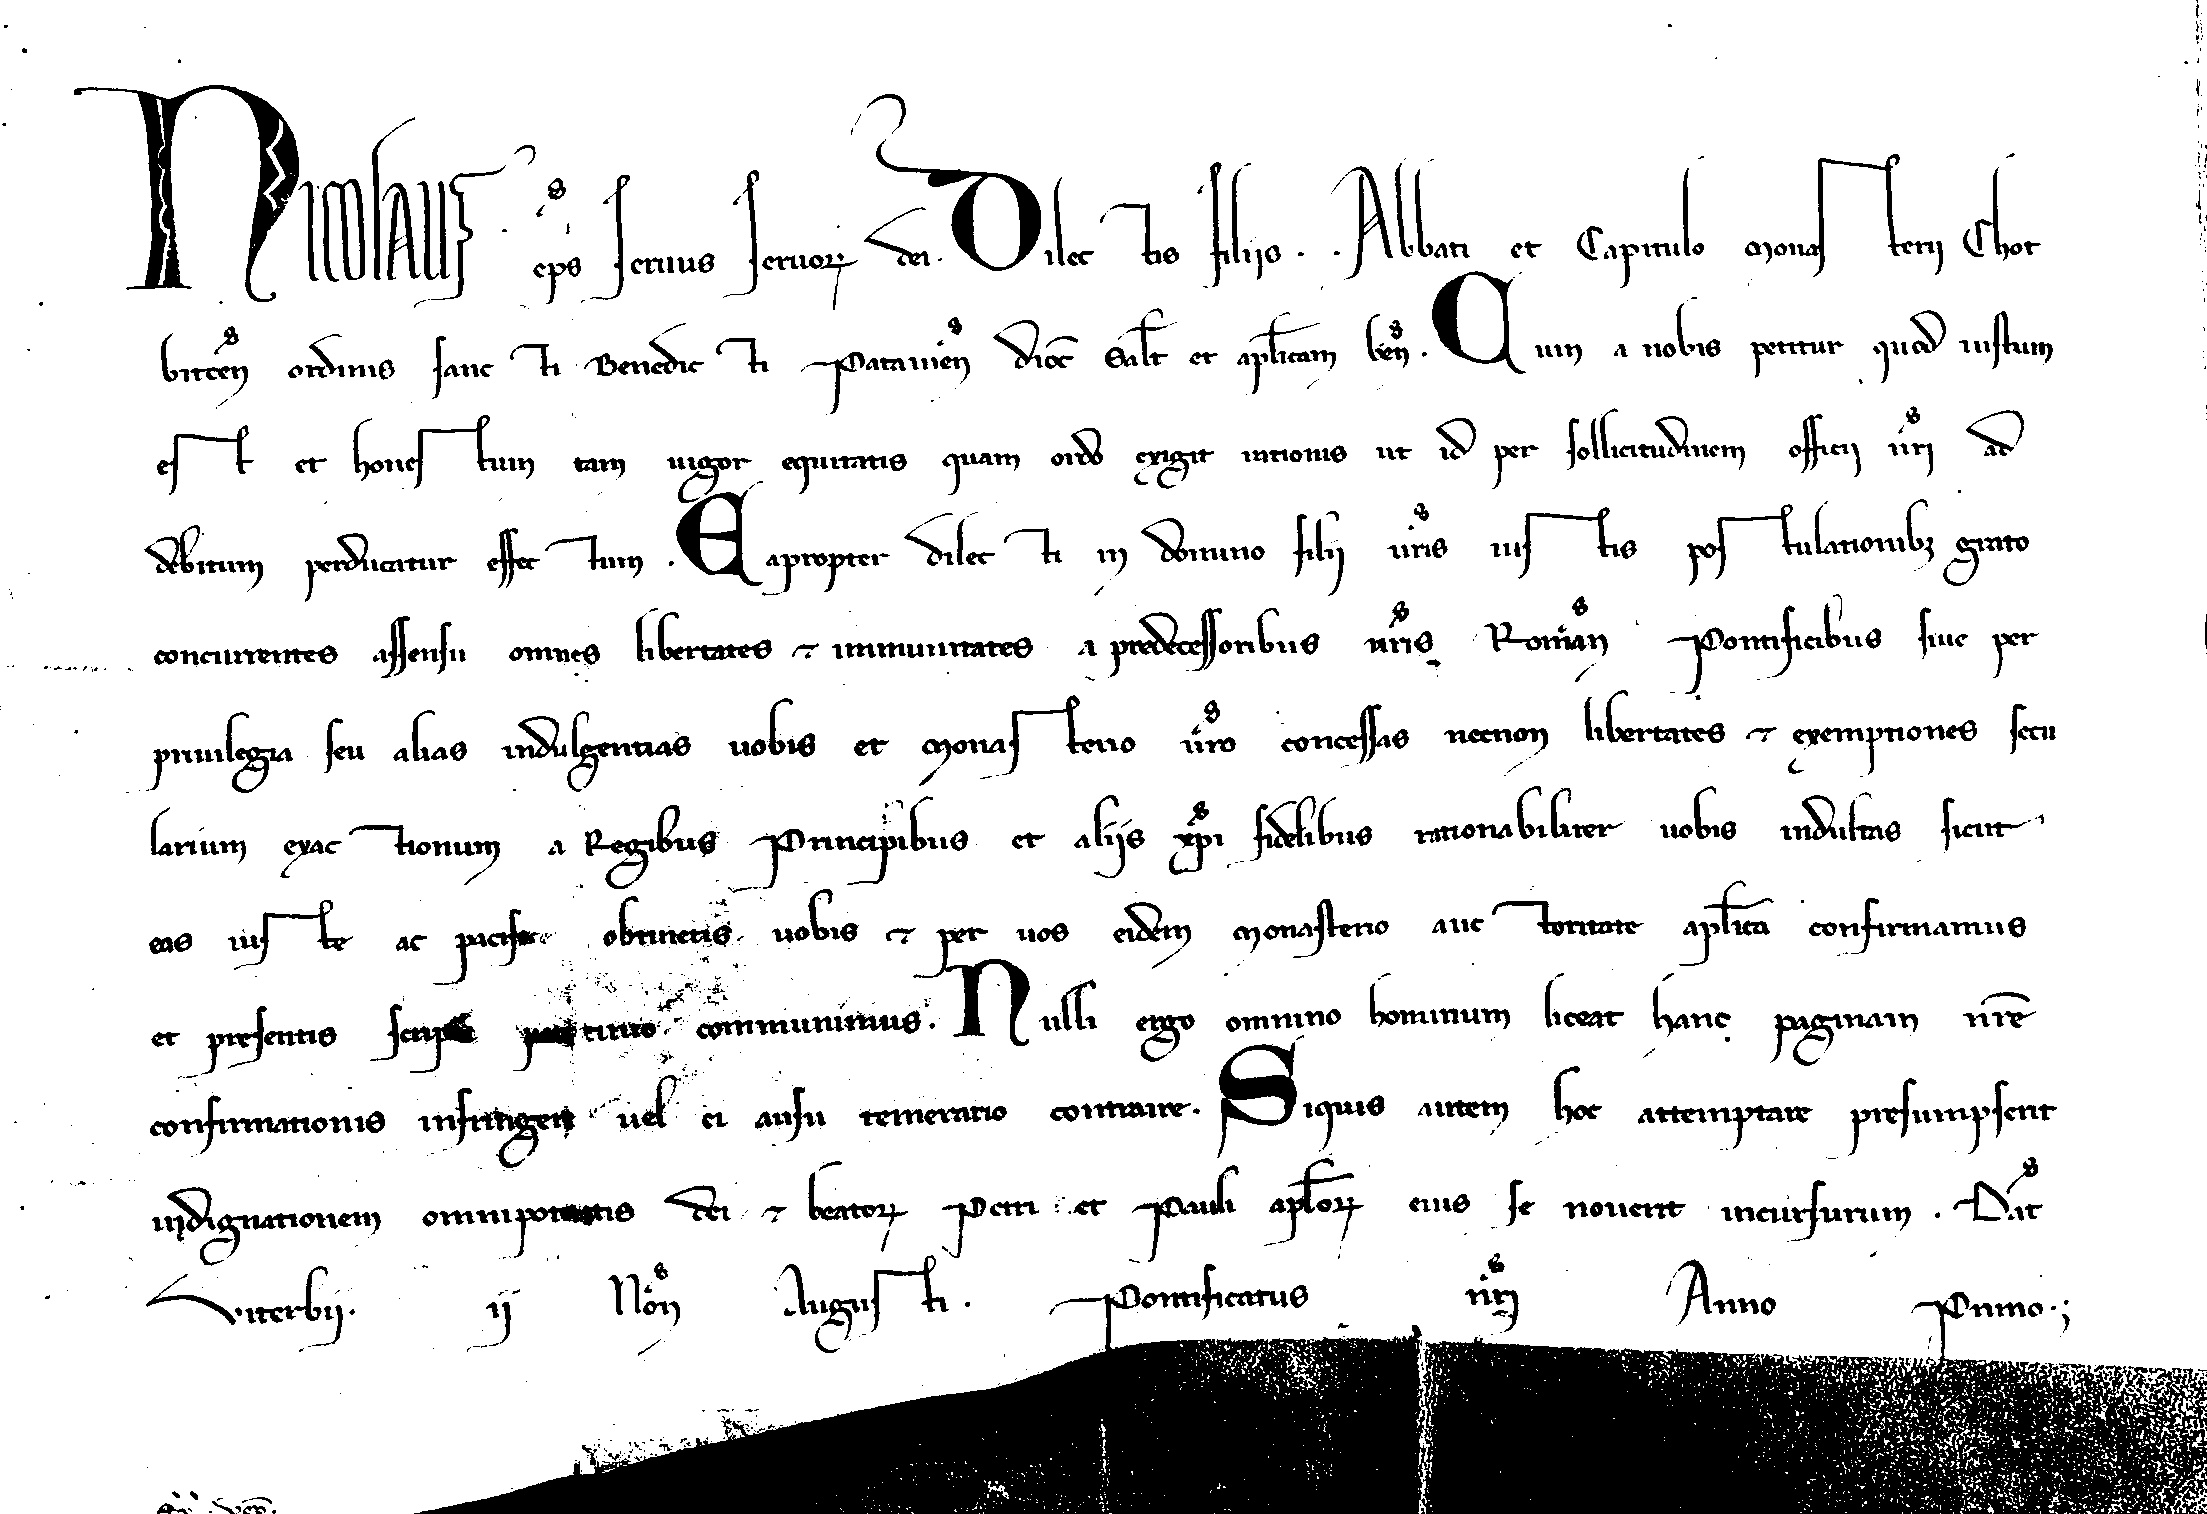 Nicolaus eps seruus seruoꝝ dei. Dilectis filiis . . Abbati et Capitulo Monasterij Chot
bicen ordinis sancti Benedicti Patauien dioc Salt et aplicam ben. Cum a nobis petitur quod iustum
est et honestum tam uigor equitatis quam ordo exigit rationis ut id per sollicitudinem officij nri ad
debitum perducatur effectum. Eapropter dilecti in domino filij uris iustis postulationibꝫ grato
concurrentes assensu omnes libertates ⁊ immunitates a predecessoribus nris Roman Pontificibus siue per
priuilegia seu alias indulgentias uobis et Monasterio uro concessas necnon libertates ⁊ exemptiones secu
larium exactionum a Regibus Principibus et aliis xpi fidelibus rationabiliter uobis indultas sicut
eas iuste ac pacifice obtinetis uobis ⁊ per uos eidem Monasterio auctoritate aplica confirmamus
et presentis scripti patrocinio communimus. Nulli ergo omnino hominum liceat hanc paginam nre
confirmationis infringere uel ei ausu temerario contraire. Siquis autem hoc attemptare presumpserit
indignationem omnipotentis dei ⁊ beatoꝝ Petri et Pauli aploꝝ eius se nouerit incursurum. Dat
Viterbij. ij Non Augusti. Pontificatus nri Anno Primo.;